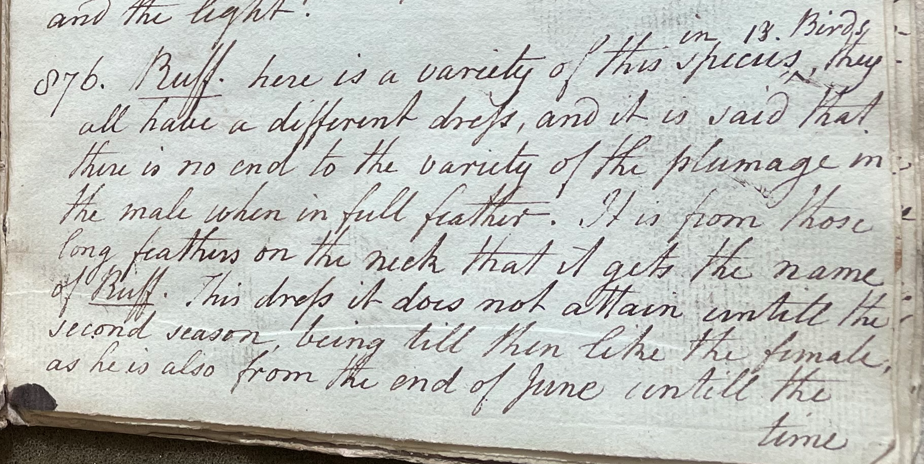 and the light.
in 13. Birds
876. Ruff. here is a variety of this species, they
all have a different dreſs, and it is said that
there is no end to the variety of the plumage in
the male when in full feather. It is from those
long feathers on the neck that it gets the name
of Ruff. This dreſs it does not attain untill the
second season, being till then like the female,
as he is also from the end of June untill the
time